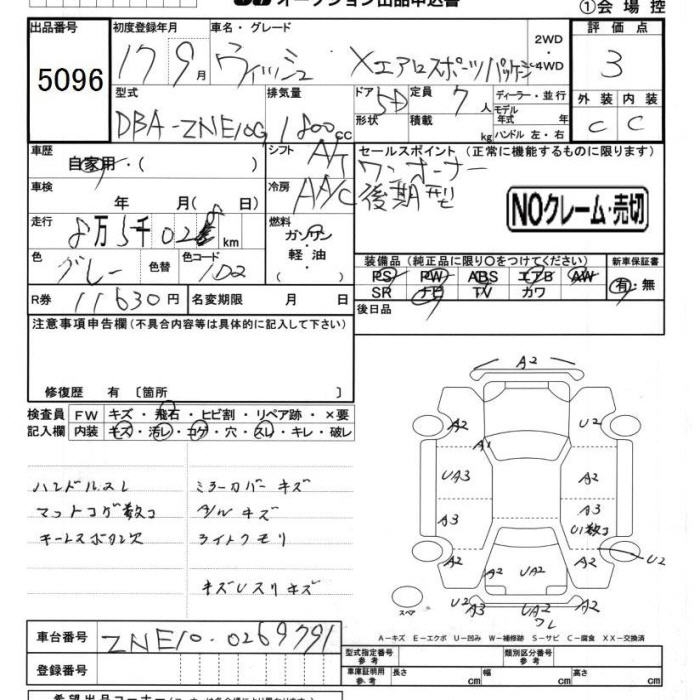 オークション出品申込書
①会場控
出品番号 初度登録年月 車名・グレード 2WD ・4WD 評価点
5096 17 9月 ウィッシュ Xエアロスポーツパッケージ 3
型式 排気量 ドア 形状 5D 定員 7人 積載 kg ディーラー・並行 モデル年式 年 ハンドル 左・右 外装 内装
DBA-ZNE10G 1800cc C C
車歴 自家用・( ) シフト A/T セールスポイント (正常に機能するものに限ります)
車検 年 月( 日) 冷房 AA/C ワンオーナー
後期型
NOクレーム・売切
走行 8万5千02 km 燃料 ガソリン 軽・油 ( )
色 グレー 色替 色コード 1D2
装備品 (純正品に限り○をつけてください) 新車保証書
PS PW ABS エアB AW 有・無
SR ナビ TV カワ
R券 11630円 名変期限 月 日 後日品
注意事項申告欄 (不具合内容等は具体的に記入して下さい)
修復歴 有 〔箇所 〕
検査員 FW キズ・飛石・ヒビ割・リペア跡・×要
記入欄 内装 キズ・汚レ・コゲ・穴・スレ・キレ・破レ
ハンドルスレ ミラーカバーキズ
マットコゲ数コ キズ
キーレスボタン欠 ライトクモリ
キズUスリキズ
A2
A2 U2
A1
UA3 A2
A3 A3
U1数コ
U2
A2 A2 UA2 A2 A2
スペア U2 A3 UA2 ワレ A2
A-キズ E-エクボ U-凹み W-補修跡 S-サビ C-腐食 XX-交換済
車台番号 ZNE10-0269791
型式指定番号 参考 類別区分番号 参考
登録番号 車庫証明用 参考 長さ cm 幅 cm 高さ cm
希望出品コーナー